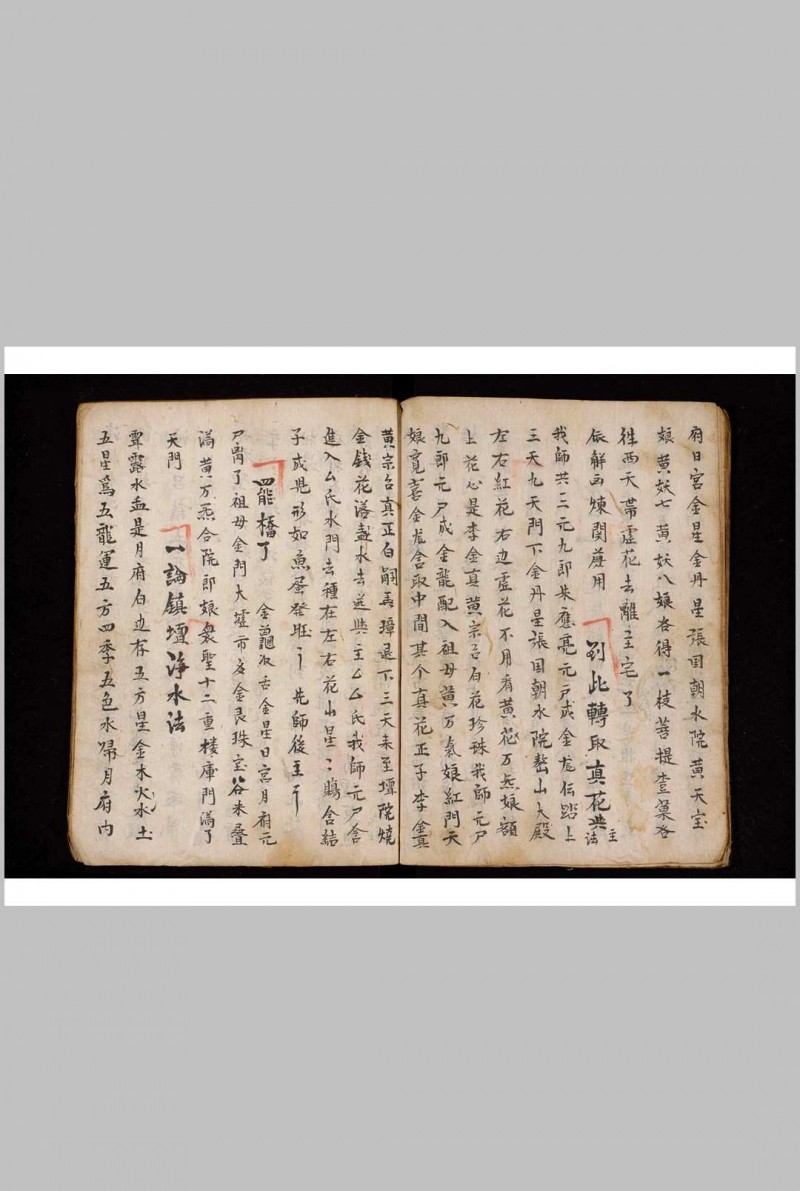 府日宮金星金丹星張囯朝水院黄天宝
娘黄妖七黄妖八娘各得一枝菩提壹菓各
徃西天帶虛花去離主宅了
依解西煉関薦用 到此轉取真花共主法
我師共三元九郎朱應亮元尸成金龙伝踏上
三天九天門下金丹星張囯朝水院鰲山大殿
左右紅花右边虛花不用看黄花万炁娘額
上花心是李金真黄宗召白花珍珠我師元尸
九郎元尸成金龍配入祖母黄万袅娘紅門天
娘寛喜金龙含取中間某个真花正子李金真
黄宗召真正白嗣馬璋退下三天来至壇院燒
金錢花落水去送與主厶厶氏我師元尸含
進入厶氏水門去種在左右花山星〻含結
子成児形如魚蛋發旺了先師後主了
罷橋了 金龍收去金星日宮月府元
尸斉了祖母金門大墟市多金艮珠宝谷米叠
滿黄万炁合院郎娘衆聖十二重楼庫門滿了
天門 一論鎮壇淨水法
覃露水血是月府右边存五方星金木火水土
五星為五龍運五方四季五色水帰月府内